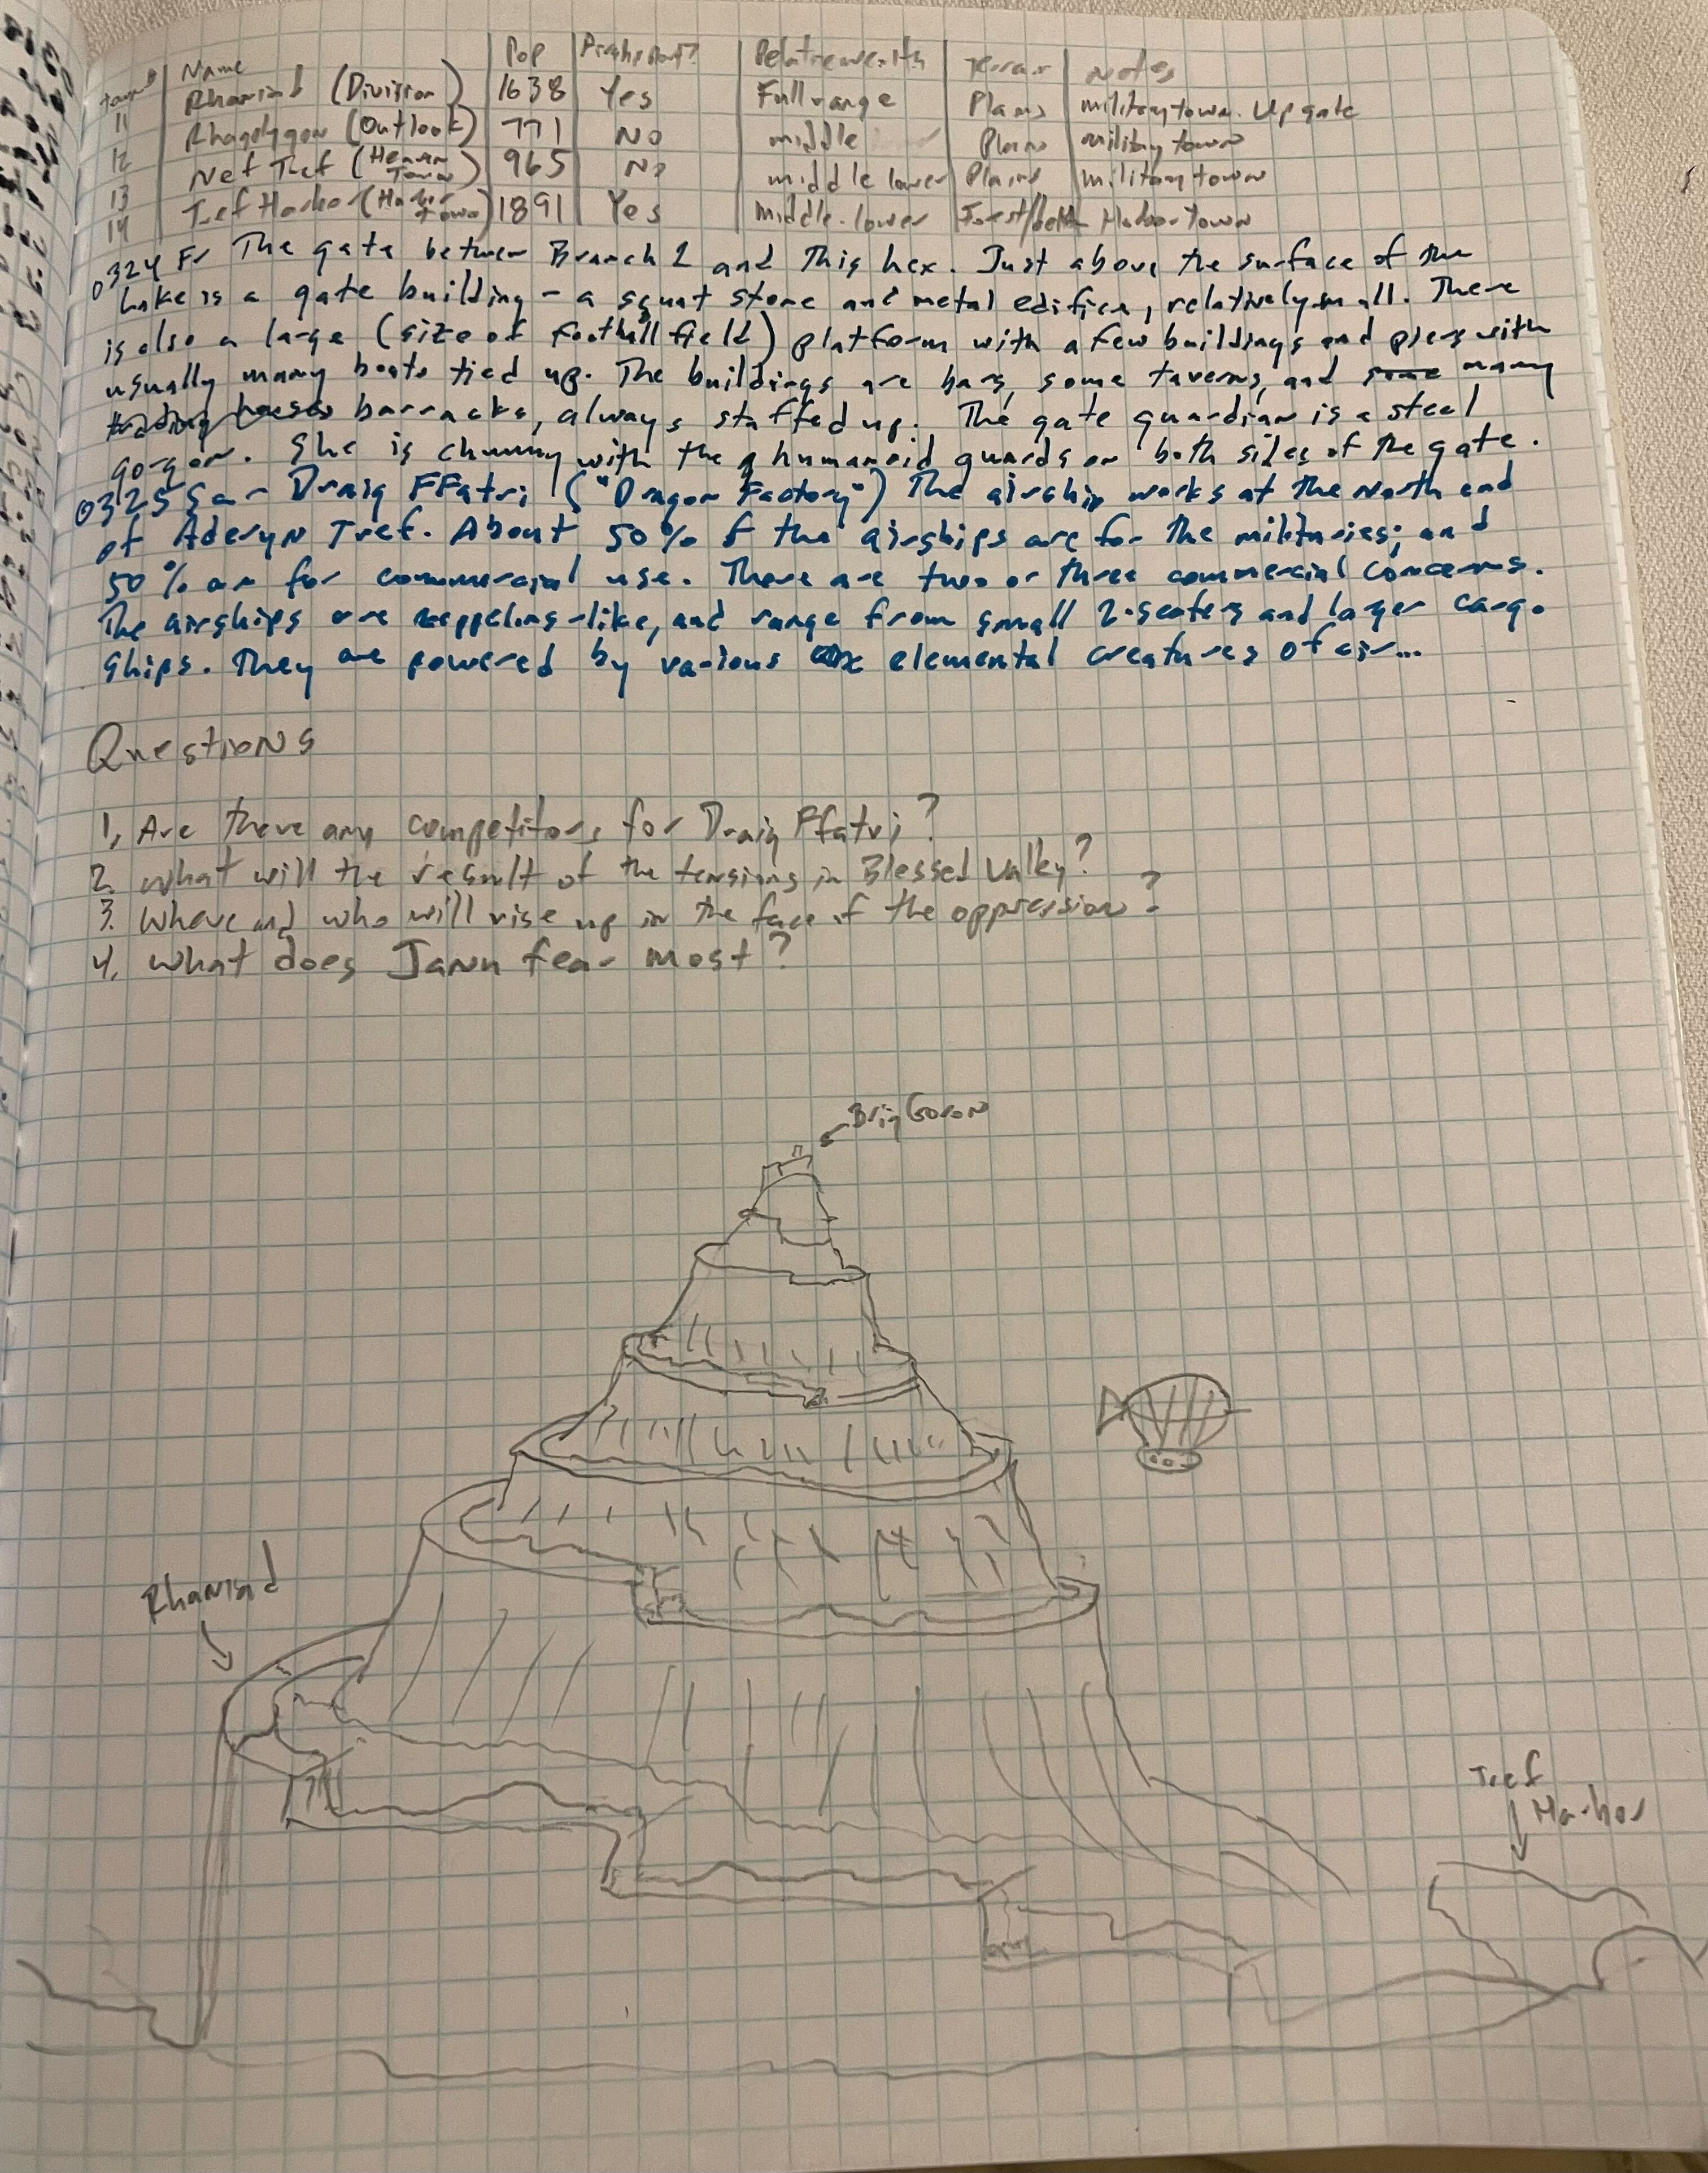 town# Name Pop Airship Port? Relative wealth Terrain Notes
11 Rhaniad (Division) 1638 Yes Full range Plains military town. Up gate
12 Rhagolygon (Outlook) 771 No middle Plains military town
13 Nef Tref (Heaven Town) 965 No middle lower Plains military town
14 Tref Harbor (Harbor Town) 1891 Yes Middle-lower Forest/ Harbor town
0324 Fr The gate between Branch 2 and this hex. Just above the surface of the
Lake is a gate building - a squat stone and metal edifice, relatively small. There
is also a large (size of football field) platform with a few buildings and piers with
usually many boats tied up. The buildings are bars, some taverns, and some many
trading houses barracks, always staffed up. The gate guardian is a steel
gorgon. She is chummy with the humanoid guards on both sides of the gate.
0325 Sa - Draig FFatri ("Dragon Factory") The airship works at the North end
of Aderyn Tref. About 50% of the airships are for the militaries; and
50% are for commercial use. There are two or three commercial concerns.
The airships are zeppelins-like, and range from small 2-seaters and larger cargo
ships. They are powered by various elemental creatures of air...
Questions
1, Are there any competitors for Draig Ffatri?
2. What will the result of the tensions in Blessed Valley?
3. Where and who will rise up in the face of the oppression?
4, What does Jann fear most?
Brig Goron
Rhaniad
Tref
Harbor